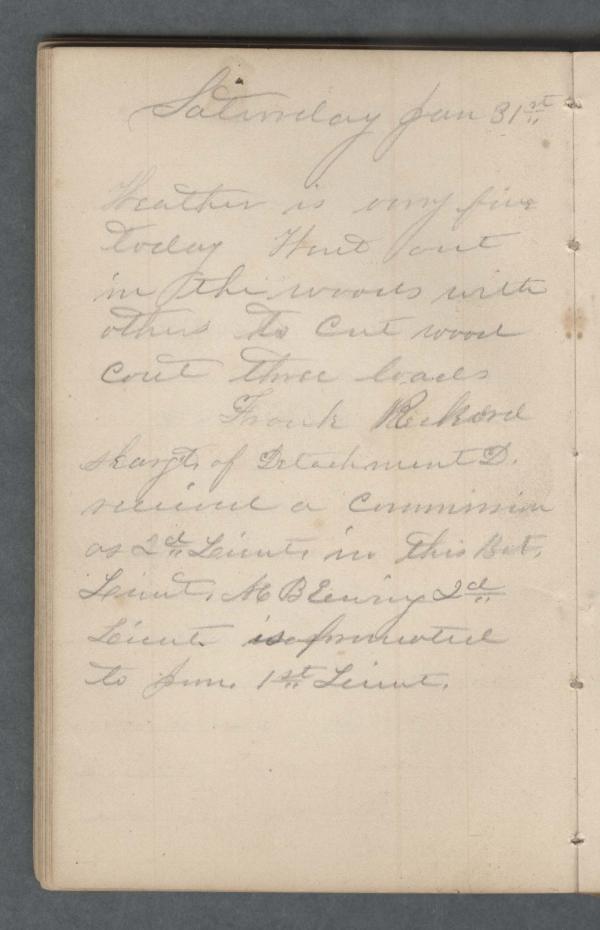 Saturday Jan 31st
Weather is very fine
today Went out
in the woods with
others to cut wood
cout three loads
Frank Rickord
skargt, of Detachment D.
recieved a commission
as 2d Leiut, in this Bat,
Leiut, M B Ewing 2d
Leiut. is promoted
to jun. 1st Leiut.